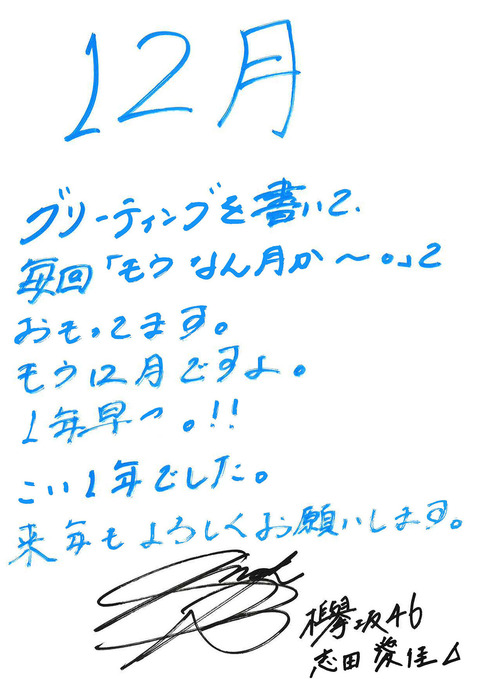 12月
グリーティングを書いて、
毎回「もう なん月か〜。」と
おもってます。
もう12月ですよ。
1年早っ。!!
こい1年でした。
来年もよろしくお願いします。
欅坂46
志田 愛佳